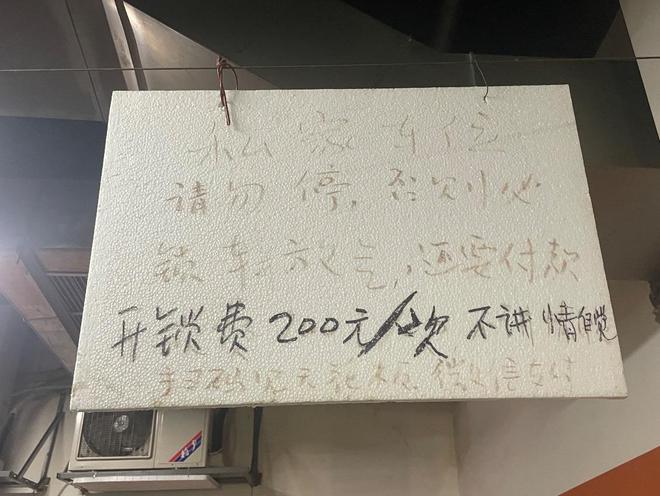 私家车位
请勿停,否则必
锁车放气,还要付款
开锁费200元/次 不讲情自觉